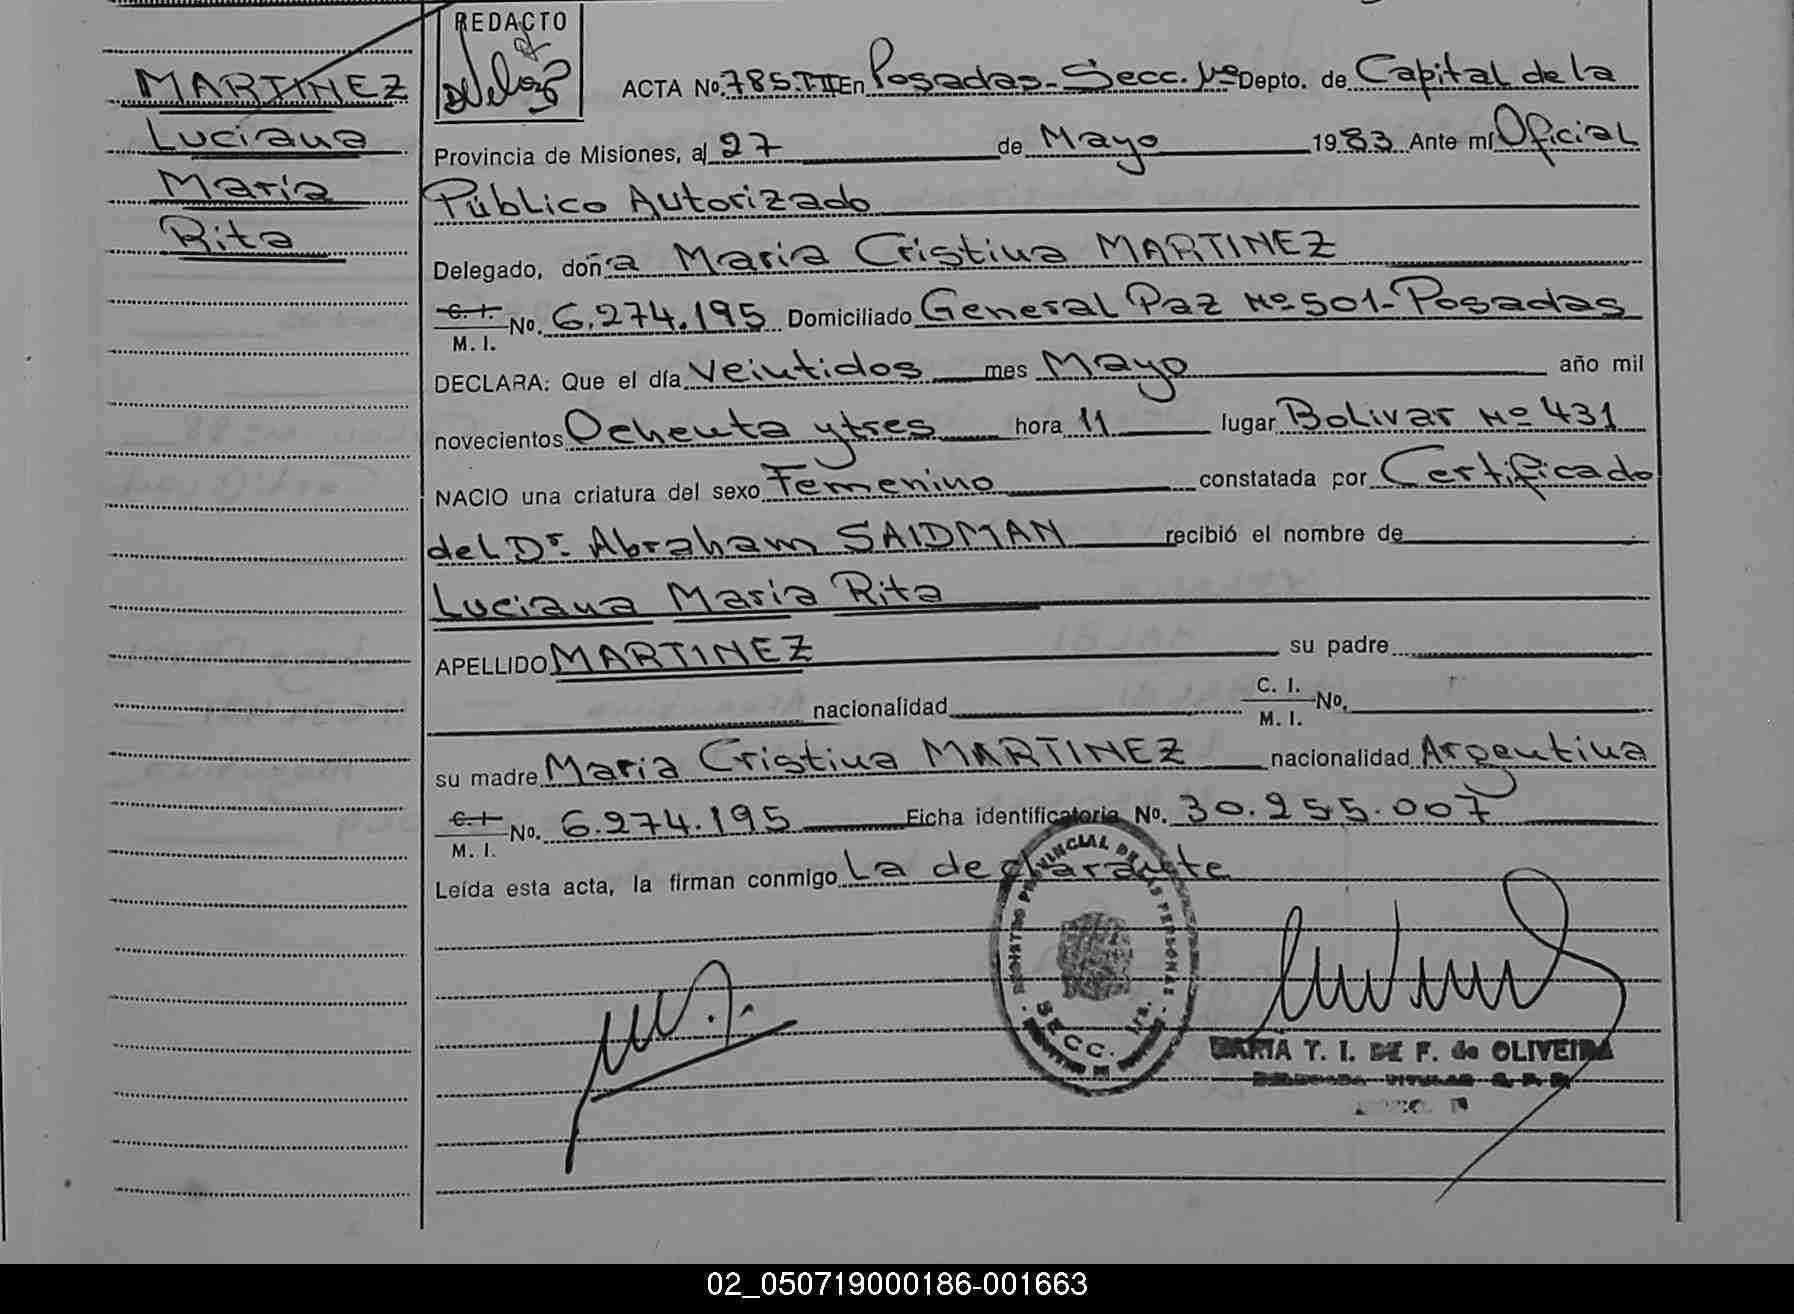 REDACTO
MARTINEZ
Luciana
María
Rita
ACTA No. 785.T.II En Posadas-Secc. 1º Depto. de Capital de la
Provincia de Misiones, al 27 de Mayo 1983 Ante mí Oficial
Público Autorizado
Delegado, doña Maria Cristina MARTINEZ
C. I.
M. I. No. 6.274.195 Domiciliado General Paz Nº 501-Posadas
DECLARA: Que el día Veintidos mes Mayo año mil
novecientos Ochenta y tres hora 11 lugar Bolivar Nº 431
NACIO una criatura del sexo Femenino constatada por Certificado
del Dr. Abraham SAIDMAN recibió el nombre de
Luciana María Rita
APELLIDO MARTINEZ su padre
nacionalidad C. I.
M. I. No.
su madre Maria Cristina MARTINEZ nacionalidad Argentina
C. I.
M. I. No. 6.274.195 Ficha identificatoria No. 30.255.007
Leída esta acta, la firman conmigo La declarante
REGISTRO PROVINCIAL DE LAS PERSONAS
SECC. 1ra.
MARIA T. I. DE F. de OLIVEIRA
02_050719000186-001663